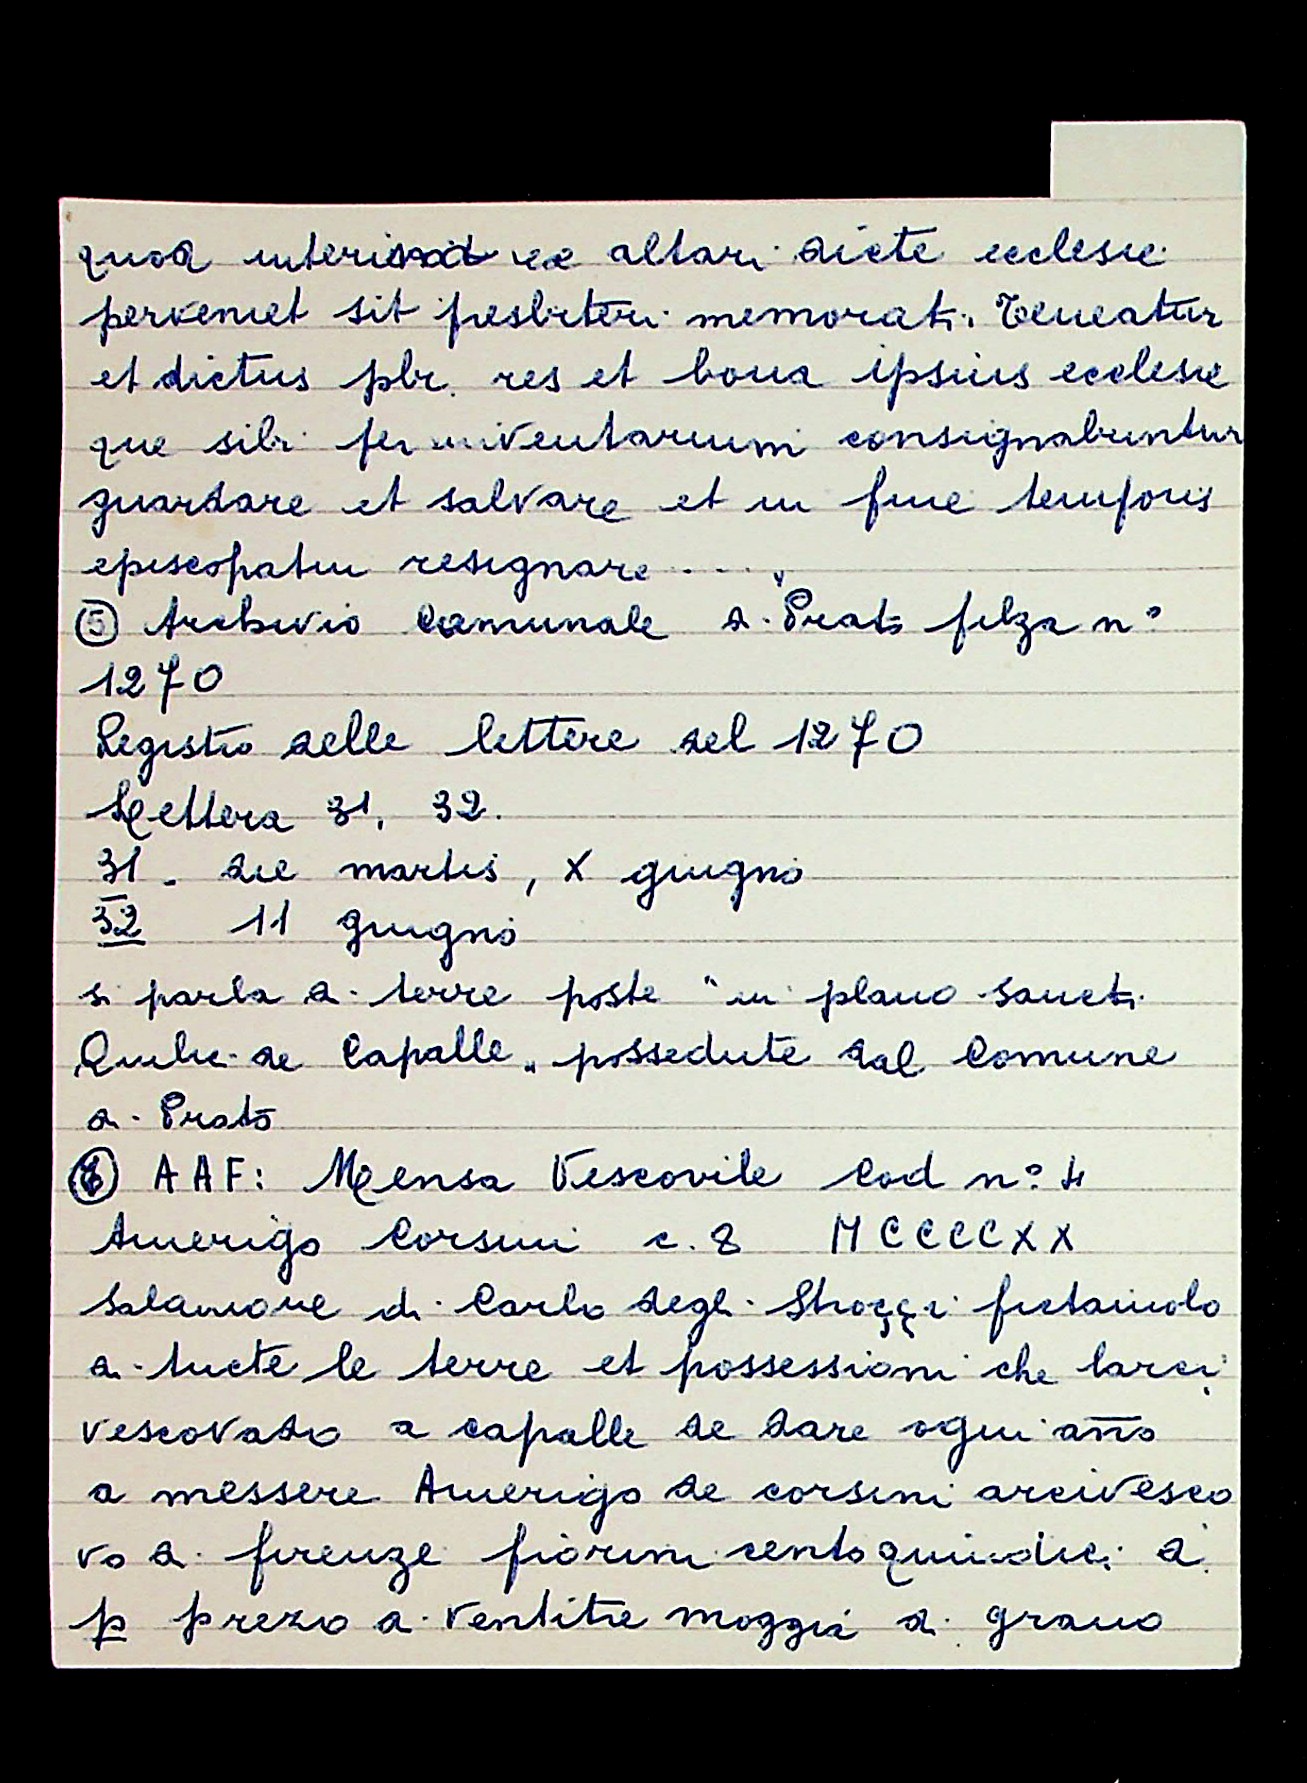 quod interim ex altari dicte ecclesie
perveniet sit presbiteri memorati. Teneatur
et dictus pbr. res et bona ipsius ecclesie
que sibi per inventarium consignabuntur
guardare et salvare et in fine temporis
episcopatui resignare ....
⑤ Archivio Comunale di Prato filza n°
1270
Registro delle lettere del 1270
Lettera 31, 32.
31 - die martis, X giugno
32 11 giugno
si parla di terre poste "in plano sancti
Quilici de Capalle" possedute dal Comune
di Prato
⑥ AAF: Mensa Vescovile Cod n° 4
Amerigo Corsini c. 8 MCCCCXX
Salamone di Carlo degli Stroççi fictaiuolo
di tucte le terre et possessioni che larci
vescovado a capalle de dare ogni anno
a messere Amerigo de corsini arcivesco
vo di firenze fiorini cento quindici di
p prezo di ventitre moggia di grano